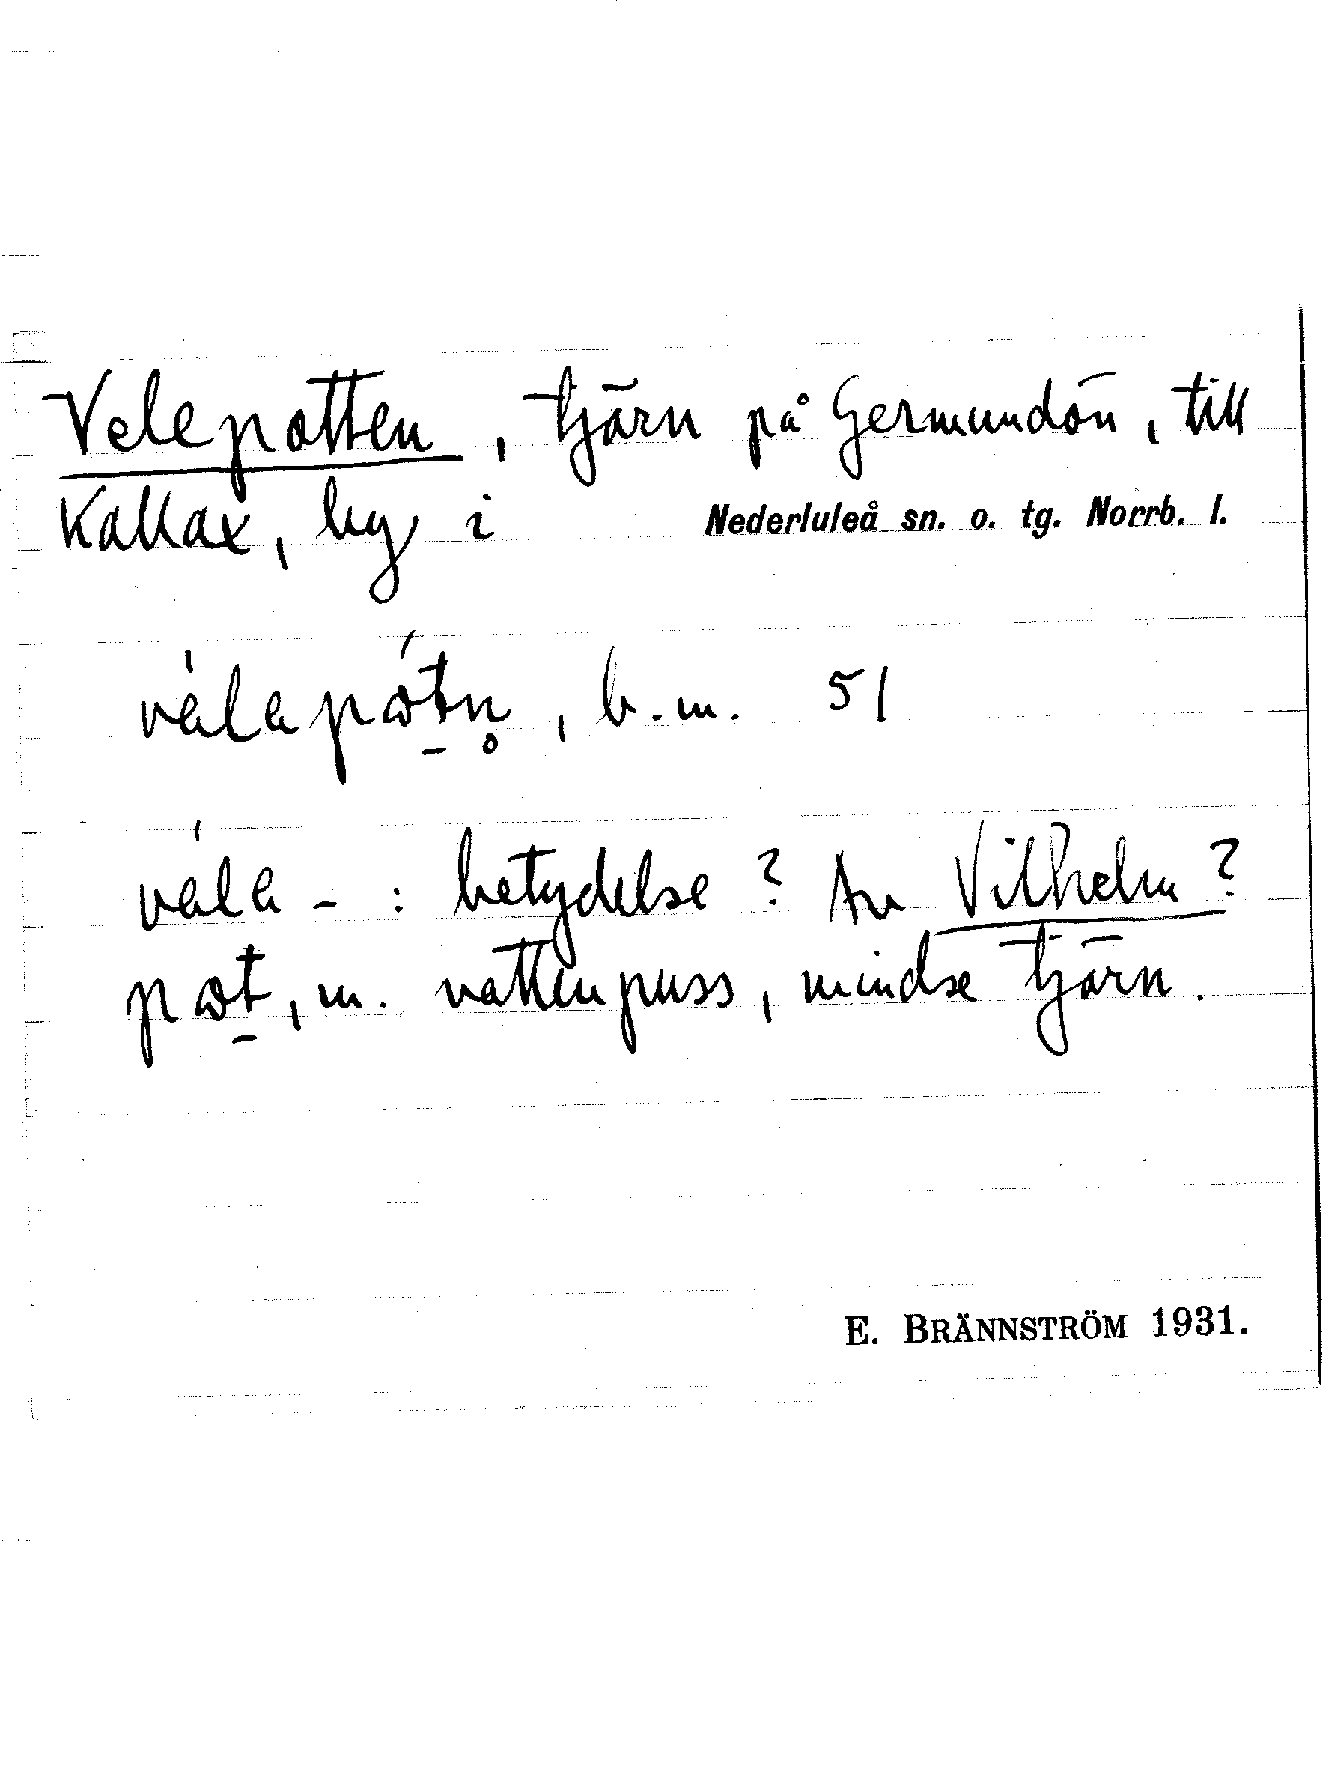 Velepotten, tjärn på Germundön, till
Kallax, by i Nederluleå sn. o. tg. Norrb. l.
vélapǿt̠n̥, b.m. 51
véla- : betydelse? Av Vilhelm?
pøt̠, m. vattenpuss, mindre tjärn.
E. BRÄNNSTRÖM 1931.